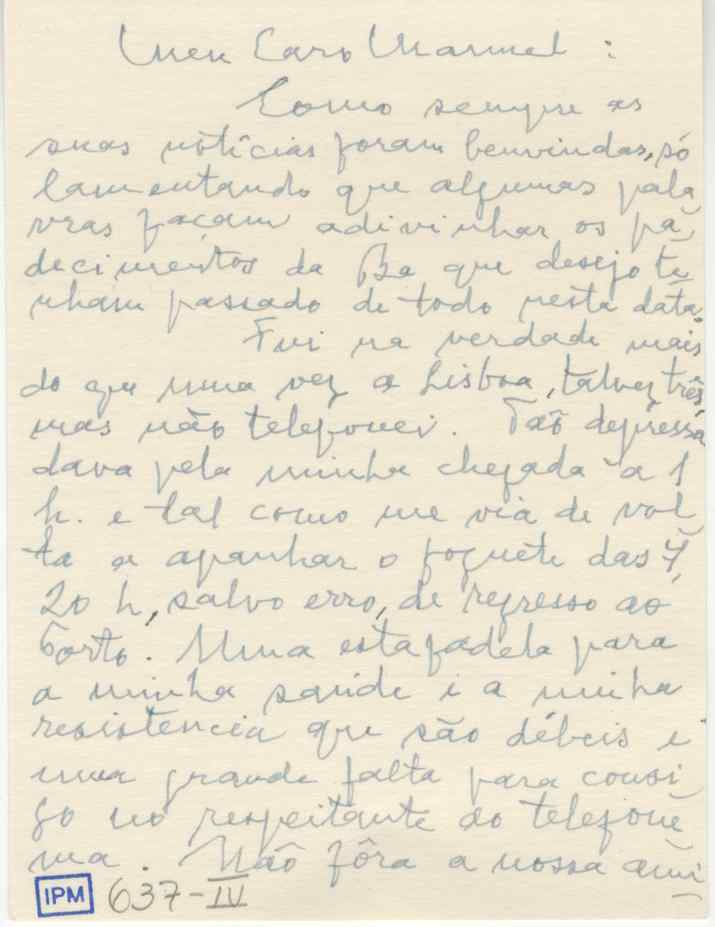 Meu Caro Manuel :
Como sempre as
suas notícias foram benvindas, só
lamentando que algumas pala
vras façam adivinhar os pa-
decimentos da Ba que desejo te
nham passado de todo nesta data.
Fui na verdade mais
do que uma vez a Lisboa, talvez três,
mas não telefonei. Tão depressa
dava pela minha chegada à 1
h. e tal como me via de vol
ta a apanhar o foguete das 7,
20 h, salvo erro, de regresso ao
Porto. Uma estafadela para
a minha saúde e a minha
resistencia que são débeis e
uma grande falta para consi
go no respeitante ao telefone
ma. Não fôra a nossa ami
IPM 637-IV